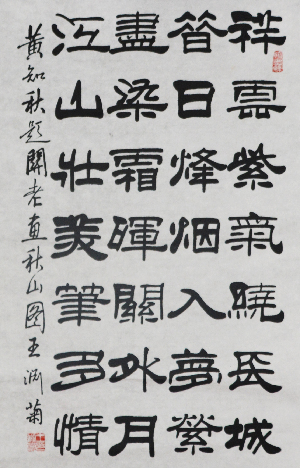 祥雲紫氣繞長城
昔日烽烟入夢縈
盡染霜暉關外月
江山壯美筆多情
黄知秋題關老秋山圖王渊菊